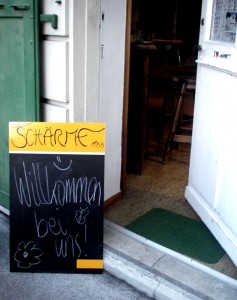 SCHÄRME
Willkommen
bei
uns!